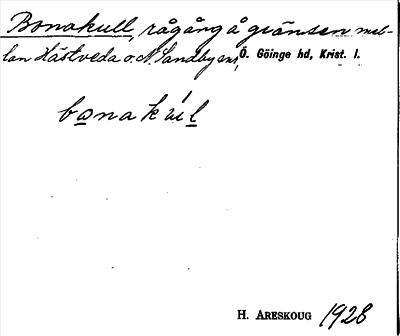 Bonakull, rågång å gränsen mel-
lan Hästveda o. N. Sandby sns, Ö. Göinge hd, Krist. l.
bona kul
H. ARESKOUG 1928